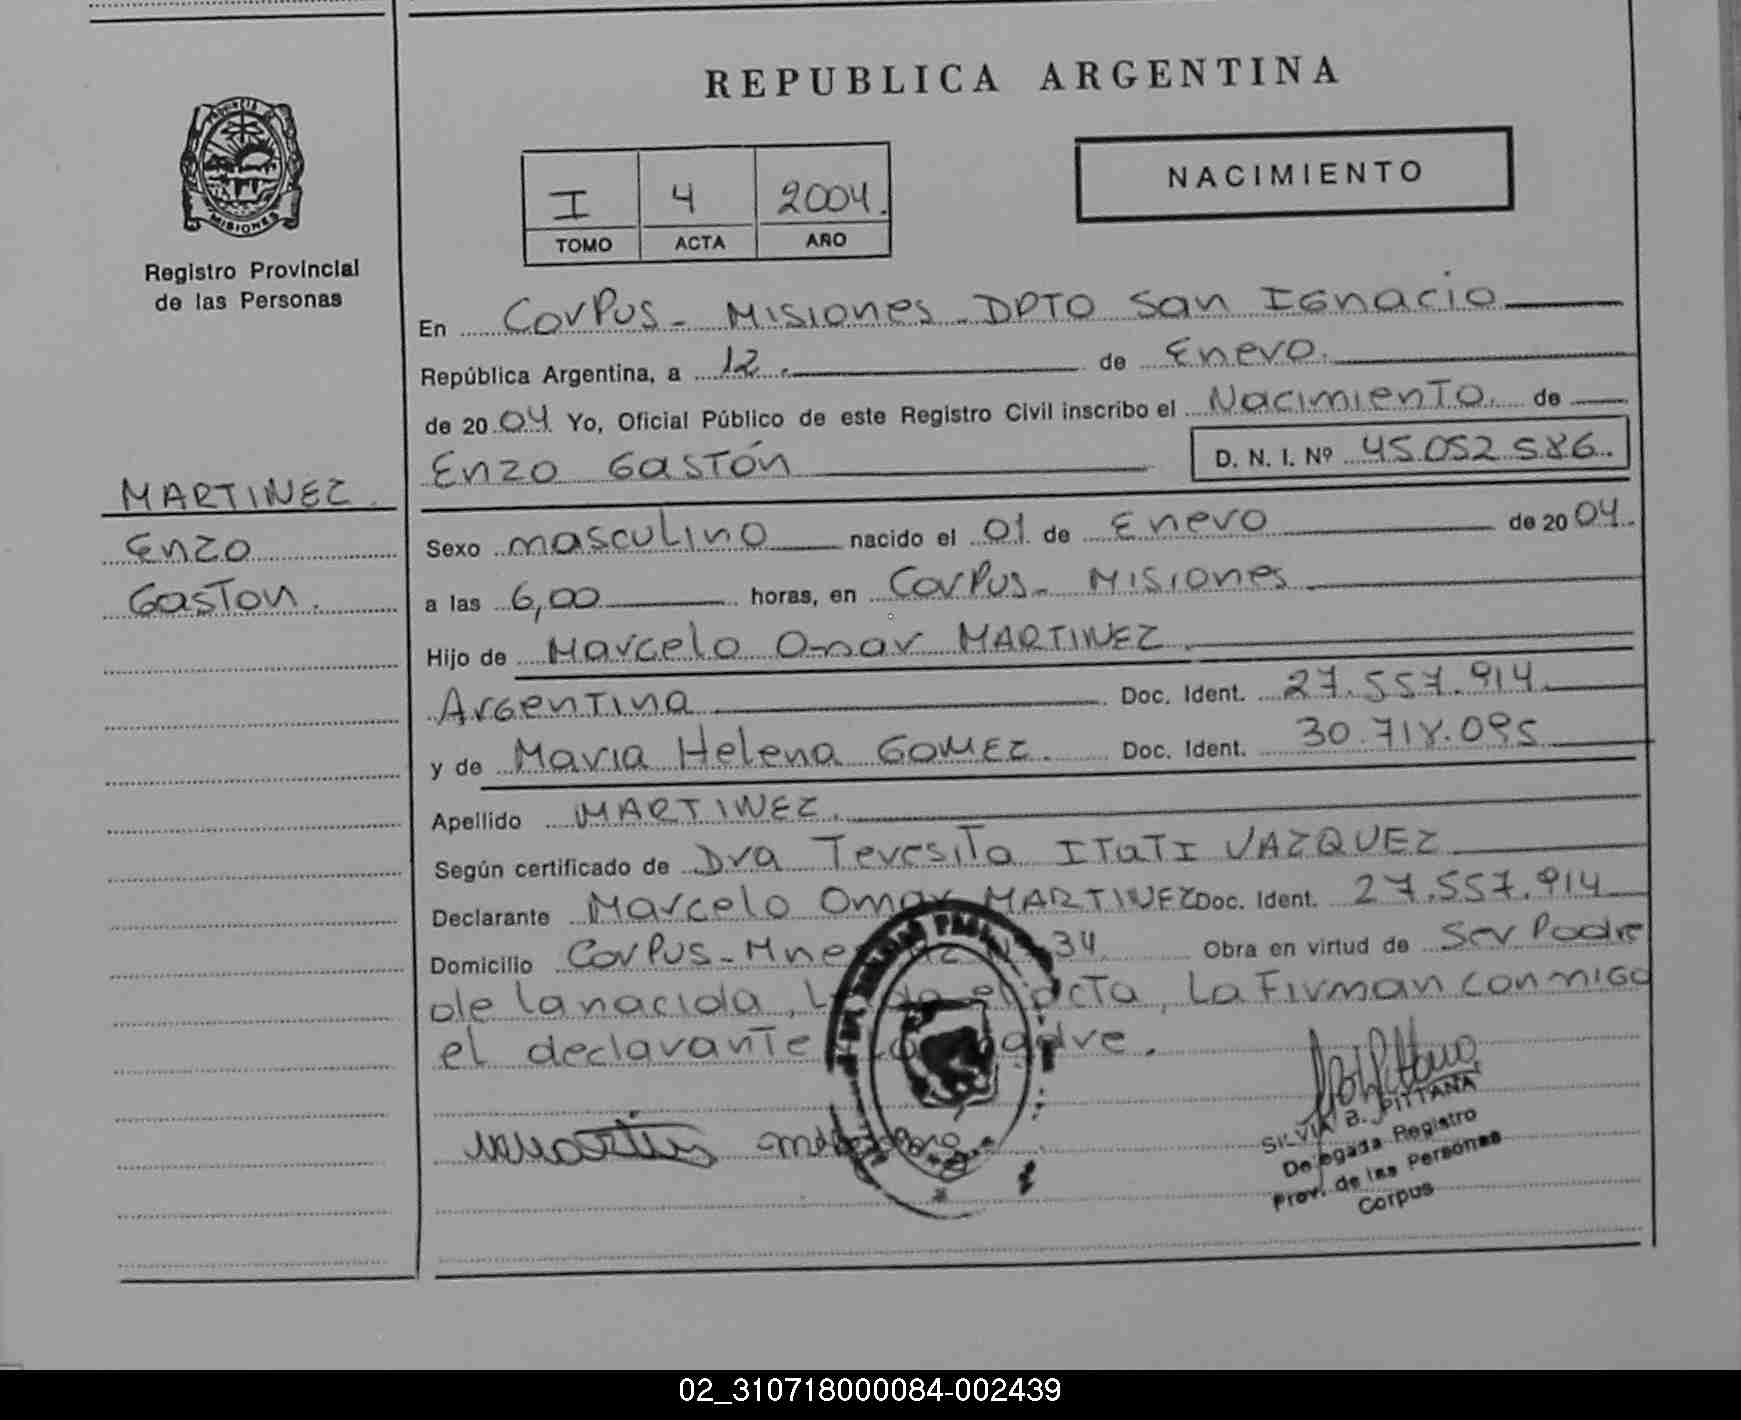 REPUBLICA ARGENTINA
PROVINCIA DE
MISIONES
Registro Provincial
de las Personas
I 4 2004.
TOMO ACTA AÑO
NACIMIENTO
MARTINEZ
Enzo
Gaston.
En Corpus - Misiones - DPTO San Ignacio
República Argentina, a 12. de Enero.
de 2004 Yo, Oficial Público de este Registro Civil inscribo el Nacimiento. de
Enzo Gastón D. N. I. Nº 45.052.586.
Sexo masculino nacido el 01 de Enero de 2004.
a las 6,00 horas, en Corpus - Misiones
Hijo de Marcelo Omar MARTINEZ.
Argentina Doc. Ident. 27.557.914
y de Maria Helena GOMEZ. Doc. Ident. 30.718.095
Apellido MARTINEZ.
Según certificado de Dra Teresita Itati VAZQUEZ
Declarante Marcelo Omar MARTINEZ Doc. Ident. 27.557.914
Domicilio Corpus - Mnes 34. Obra en virtud de Ser Padre
de la nacida, el acta, La Firman conmigo
el declarante madre.
SILVIA B. PITTANA
Delegada Registro
Prov. de las Personas
Corpus
02_310718000084-002439